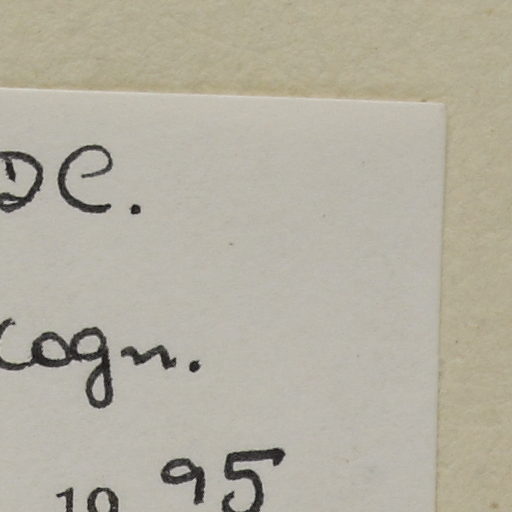 DC.
cogn.
19 95